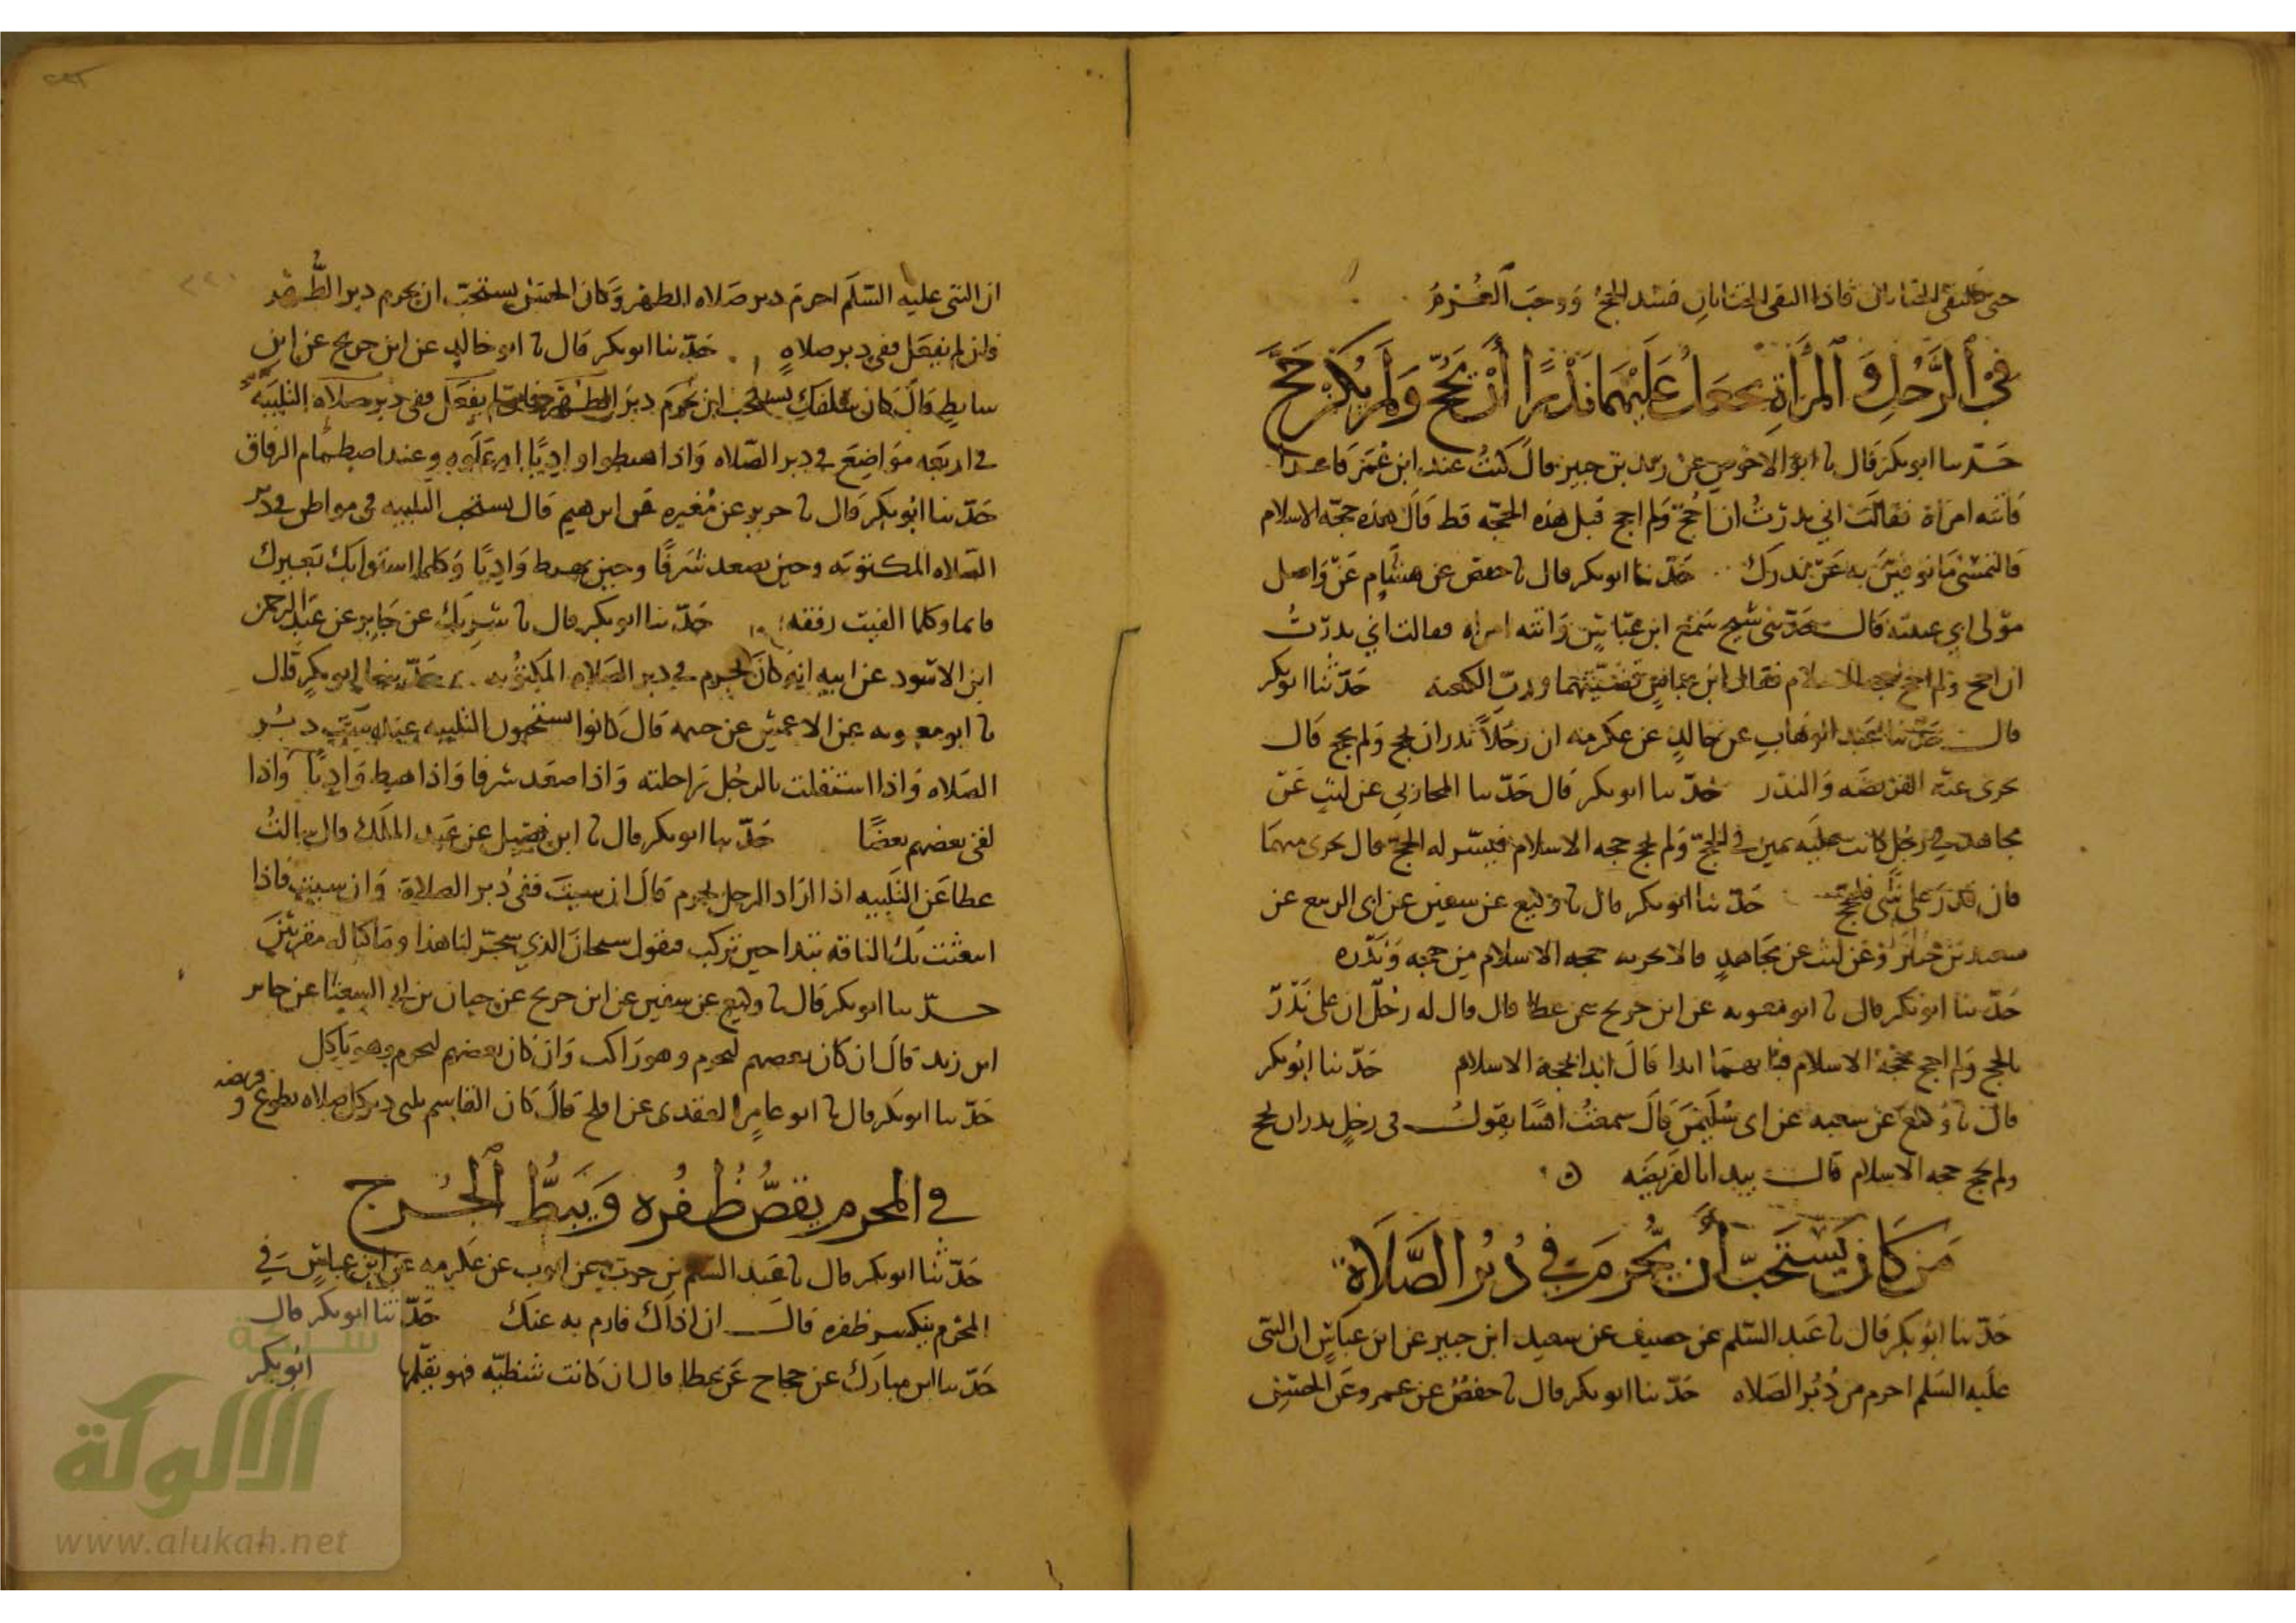 حتى يلتقي الختانان فاذا التقى الختانان فسد الحج ووجب الغرم
في الرجل والمرأة يجعل عليهما نذرا أن يحج ولم يكن حج
حدثنا ابو بكر قال نا ابو الاحوص عن زيد بن جبير قال كنت عند ابن عمر قاعدا
فاتته امراة فقالت اني نذرت ان احج ولم احج قبل هذه الحجه قط قال هذه حجه الاسلام
فالتمسي ما توفين به عن نذرك حدثنا ابو بكر قال نا حفص عن هشام عن واصل
مولى ابي عيينه قال حدثني شيخ سمع ابن عباس واتته امراه فقالت اني نذرت
ان احج ولم احج حجه الاسلام فقال ابن عباس قضيتهما ورب الكعبه حدثنا ابو بكر
قال حدثنا عبد الوهاب عن خالد عن عكرمه ان رجلا نذر ان يحج ولم يحج قال
يجزى عنه الفريضه والنذر حدثنا ابو بكر قال حدثنا المحاربي عن ليث عن
مجاهد في رجل كانت عليه يمين في الحج ولم يحج حجه الاسلام فيسر له الحج قال يجزى منهما
فان قدر على شي فليحج حدثنا ابو بكر قال نا وكيع عن سفين عن ابي الربيع عن
سعيد بن جبير وعن ليث عن مجاهد قالا يجزيه حجه الاسلام من حجه ونذره
حدثنا ابو بكر قال نا ابو معويه عن ابن جريج عن عطا قال قال له رجل ان علي نذر
بالحج ولم احج حجه الاسلام فبايهما ابدا قال ابدا بحجة الاسلام حدثنا ابو بكر
قال نا وكيع عن شعبه عن ابي سليمن قال سمعت انسا يقول في رجل نذر ان يحج
ولم يحج حجه الاسلام قال يبدا بالفريضه ه
من كان يستحب أن يحرم في دبر الصلاة
حدثنا ابو بكر قال نا عبد السلم عن خصيف عن سعيد ابن جبير عن ابن عباس ان النبي
عليه السلم احرم من دبر الصلاه حدثنا ابو بكر قال نا حفص عن عمرو عن الحسن
ان النبي عليه السلم احرم دبر صلاه الظهر وكان الحسن يستحب ان يحرم دبر الظهر
فان لم يفعل ففي دبر صلاه حدثنا ابو بكر قال نا ابو خالد عن ابن جريج عن ابن
سابط قال كان سلفك يستحب ان يحرم دبر الظهر فان لم يفعل ففي دبر صلاه التلبيه
في اربعه مواضع في دبر الصلاه واذا هبطوا واديا او علوه وعند اصطمام الرفاق
حدثنا ابو بكر قال نا جرير عن مغيره عن ابرهيم قال يستحب التلبيه في مواطن في دبر
الصلاه المكتوبه وحين يصعد شرفا وحين يهبط واديا وكلما استوا بك بعيرك
قائما وكلما لقيت رفقه حدثنا ابو بكر قال نا شريك عن جابر عن عبد الرحمن
ابن الاسود عن ابيه انه كان يحرم في دبر الصلاه المكتوبه حدثنا ابو بكر قال
نا ابو معويه عن الاعمش عن خيثمه قال كانوا يستحبون التلبيه عند ست دبر
الصلاه واذا استقلت بالرجل راحلته واذا صعد شرفا واذا هبط واديا واذا
لقي بعضهم بعضا حدثنا ابو بكر قال نا ابن فضيل عن عبد الملك قال سالت
عطا عن التلبيه اذا اراد الرجل يحرم قال ان شيت ففي دبر الصلاة وان شيت فاذا
انبعثت بك الناقه تبدا حين تركب فتقول سبحان الذي سخر لنا هذا وما كنا له مقرنين
حدثنا ابو بكر قال نا وكيع عن سفين عن ابن جريج عن حيان بن ابي الشعثا عن جابر
ابن زيد قال ان كان بعضهم ليحرم وهو راكب وان كان بعضهم ليحرم وهو ياكل
حدثنا ابو بكر قال نا ابو عامر العقدى عن افلح قال كان القاسم يلبى دبر كل صلاه تطوع وفريضه
في المحرم يقص ظفره ويبط الجرح
حدثنا ابو بكر قال نا عبد السلم بن حرب عن ايوب عن عكرمه عن ابن عباس في
المحرم ينكسر ظفره قال ان اذاك فارم به عنك حدثنا ابو بكر قال
حدثنا ابن مبارك عن حجاج عن عطا قال ان كانت شظيه فهو يقلمها
ابو بكر
شبكة
الألوكة
www.alukah.net